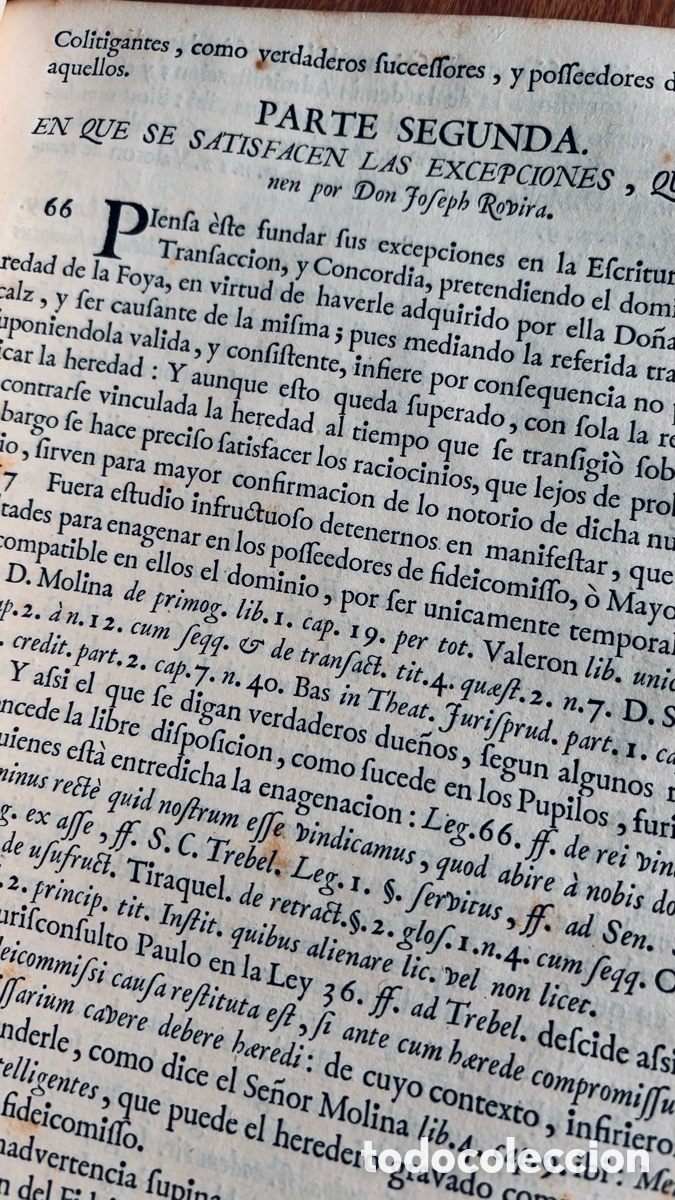 Colitigantes, como verdaderos ſucceſſores, y poſſeedores d
aquellos.
PARTE SEGUNDA.
EN QUE SE SATISFACEN LAS EXCEPCIONES, QU
nen por Don Joſeph Rovira.
66 PIenſa èſte fundar ſus excepciones en la Eſcritur
Tranſaccion, y Concordia, pretendiendo el domi
redad de la Foya, en virtud de haverle adquirido por ella Doña
calz, y ſer cauſante de la miſma; pues mediando la referida tra
uponiendola valida, y conſiſtente, infiere por conſequencia no
icar la heredad: Y aunque eſto queda ſuperado, con ſola la re
contrarſe vinculada la heredad al tiempo que ſe tranſigiò ſob
bargo ſe hace preciſo ſatisfacer los raciocinios, que lejos de pro
io, ſirven para mayor confirmacion de lo notorio de dicha nu
7 Fuera eſtudio infructuoſo detenernos en manifeſtar, que
tades para enagenar en los poſſeedores de fideicomiſſo, ò Mayo
compatible en ellos el dominio, por ſer unicamente temporal
D. Molina de primog. lib. 1. cap. 19. per tot. Valeron lib. unic
ap. 2. à n. 12. cum ſeqq. & de tranſact. tit. 4. quæſt. 2. n. 7. D. S
. credit. part. 2. cap. 7. n. 40. Bas in Theat. Juriſprud. part. 1. ca
Y aſsi el que ſe digan verdaderos dueños, ſegun algunos
ncede la libre diſpoſicion, como ſucede en los Pupilos, furi
uienes eſtà entredicha la enagenacion: Leg. 66. ff. de rei vin
minus rectè quid noſtrum eſſe vindicamus, quod abire à nobis do
g. ex aſſe, ff. S. C. Trebel. Leg. 1. §. ſervitus, ff. ad Sen.
de uſufruct. Tiraquel. de retract. §. 2. gloſ. 1. n. 4. cum ſeqq. O
. 2. princip. tit. Inſtit. quibus alienare lic. vel non licet.
uriſconſulto Paulo en la Ley 36. ff. ad Trebel. deſcide aſsi
deicommiſsi cauſa reſtituta eſt, ſi ante cum hærede compromiſſu
ſſarium cavere debere hæredi: de cuyo contexto, infiriero
nderle, como dice el Señor Molina lib. 4. cap. 9. ibi: Me
telligentes, que puede el heredero gravado com
fideicomiſſo.
nadvertencia ſupina
n del Fid
todocoleccion